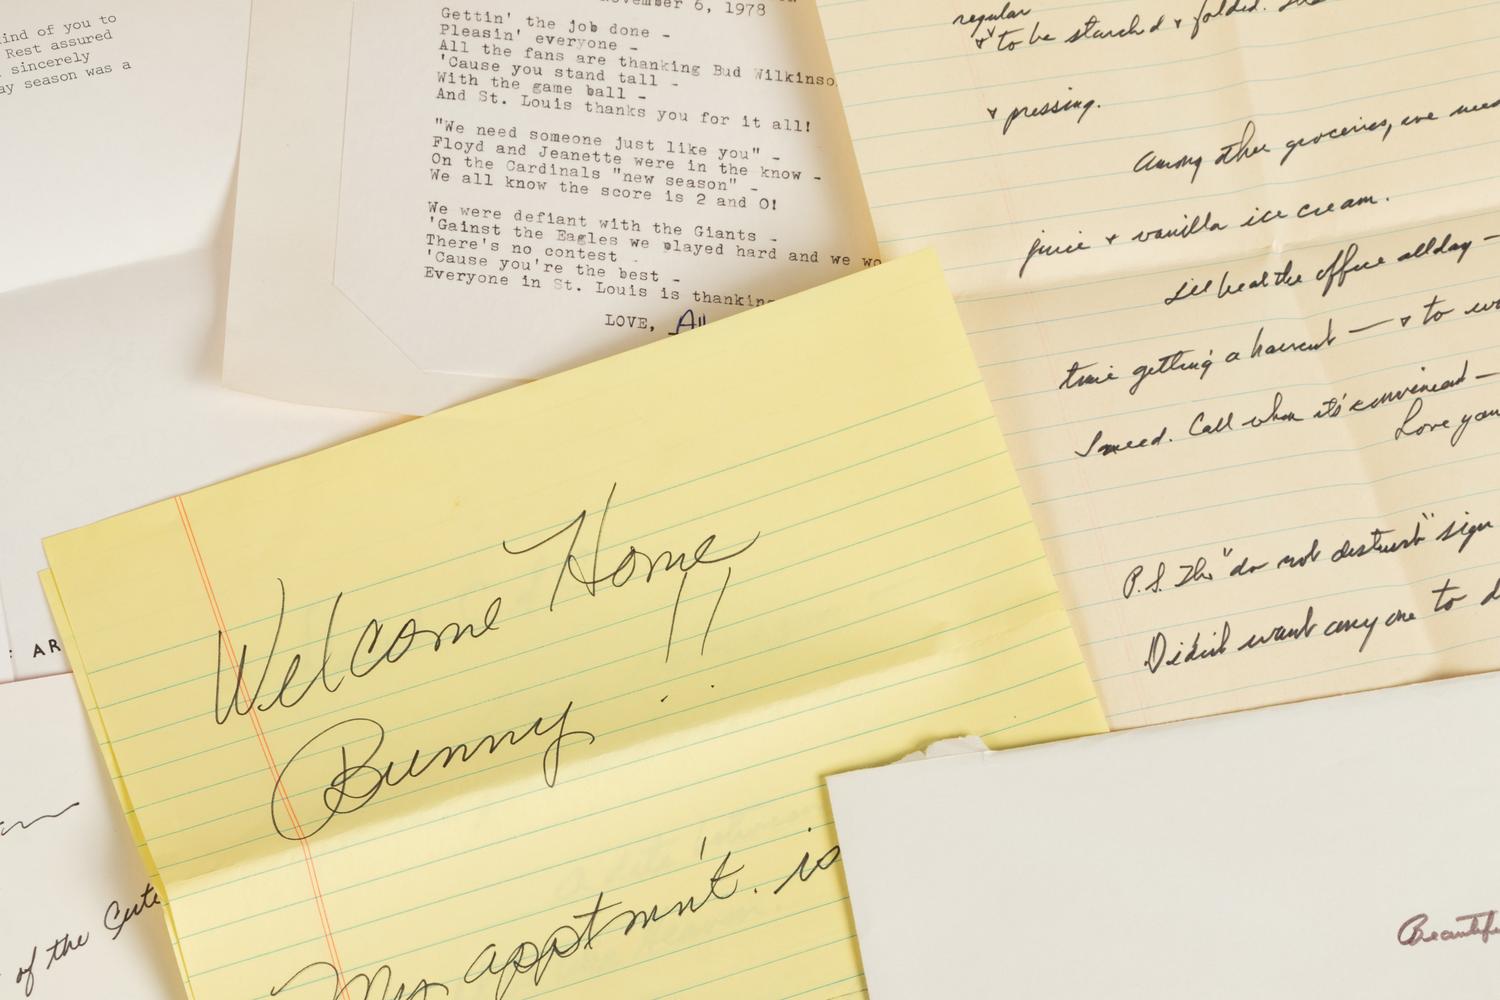 ind of you to
Rest assured
sincerely
ay season was a
vember 6, 1978
Gettin' the job done -
Pleasin' everyone -
All the fans are thanking Bud Wilkinso
'Cause you stand tall -
With the game ball -
And St. Louis thanks you for it all!
"We need someone just like you" -
Floyd and Jeanette were in the know -
On the Cardinals "new season" -
We all know the score is 2 and O!
We were defiant with the Giants -
'Gainst the Eagles we played hard and we wo
There's no contest -
'Cause you're the best -
Everyone in St. Louis is thankin
LOVE, All
regular
+ to be starched + folded.
+ pressing.
Among other groceries, we need
juice + vanilla ice cream.
I'll be at the office all day -
time getting a haircut — + to
I need. Call when it's convinead -
Love you
P.S. Thi "do not disturb" sign
Didn't want any one to d
Welcome Home
Bunny !!
My apptmn't. is
: AR
of the Cute
Beautif